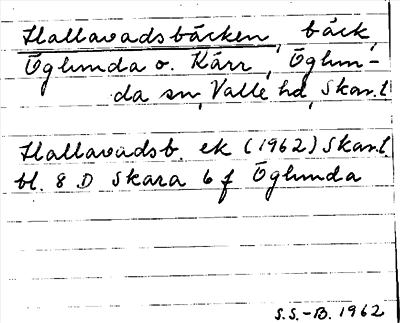 Hallavadsbäcken, bäck,
Öglunda o. Kärr, Öglun-
da sn, Valle hd, Skar.l
Hallavadsb. ek (1962) Skar.l.
bl. 8 D Skara 6 f Öglunda
S.S.-B. 1962